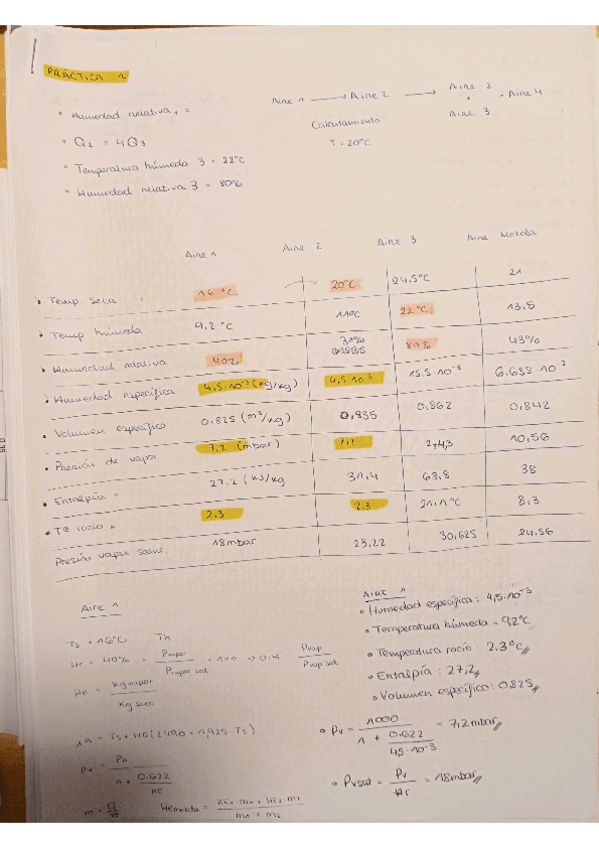 PRÁCTICA 1
• Humedad relativa₁ =
• Q₂ = 4Q₃
• Temperatura húmeda 3 = 22°C
• Humedad relativa 3 = 80%
Aire 1 → Aire 2 → Aire 2 + Aire 3 = Aire 4
Calentamiento
T = 20°C
Aire 1 Aire 2 Aire 3 Aire Mezcla
• Temp. seca 16°C 20°C 24,5°C 21
• Temp húmeda 9,2°C 11°C 22°C 13,5
• Humedad relativa 40% 31% 80% 43%
• Humedad específica 4,5·10⁻³ (kg/kg) 4,5·10⁻³ 15,5·10⁻³ 6,638·10⁻³
• Volumen específico 0,825 (m³/kg) 0,835 0,862 0,842
• Presión de vapor 7,2 (mbar) 7,2 24,3 10,56
• Entalpía 27,2 (kJ/kg 31,4 63,8 38
• Tª rocío 2,3 2,3 21,1°C 8,3
Presión vapor satur. 18mbar 23,22 30,625 24,56
Aire 1
Ts = 16°C Th
Hr = 40% = Pvapor / Pvapor sat · 100 → 0,4 = Pvap / Pvap sat
HE = kg vapor / kg seco
ia = Ts + HE (2490 + 1,925·Ts)
Pv = Pa / 1 + 0,622 / HE
m = Q / VE Hemezcla = HE₁·m₁ + HE₂·m₂ / m₁ + m₂
AIRE 1
• Humedad específica: 4,5·10⁻³
• Temperatura húmeda = 9,2°C
• Temperatura rocío: 2,3°C
• Entalpía: 27,2
• Volumen específico: 0,825
• Pv = 1000 / 1 + 0,622 / 4,5·10⁻³ = 7,2mbar
• Pvsat = Pv / Hr = 18mbar